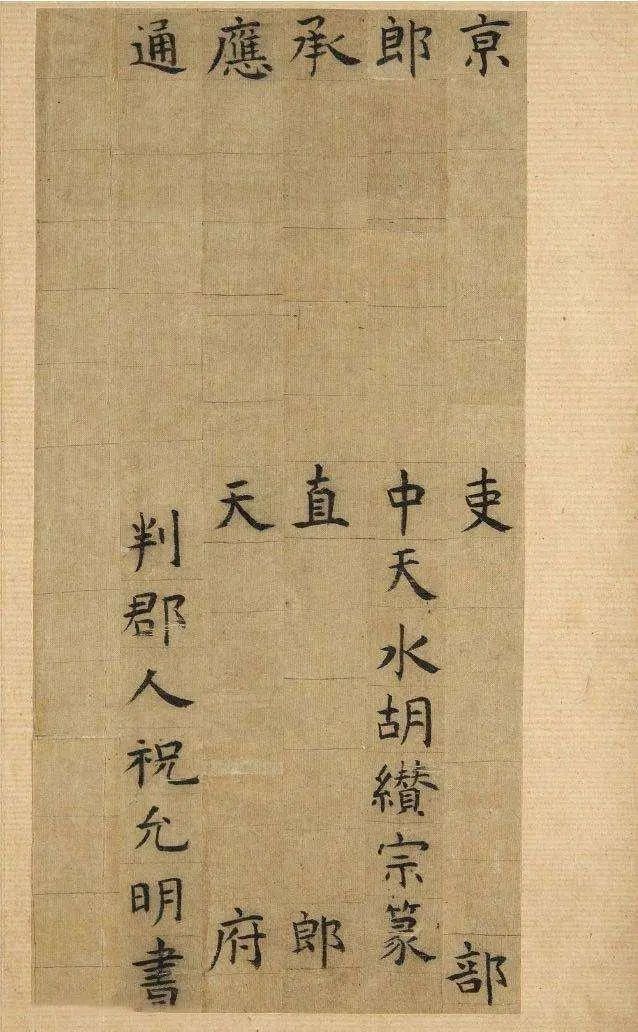 京吏部
郎中天水胡纘宗篆
承直郎
應天府
通判郡人祝允明書